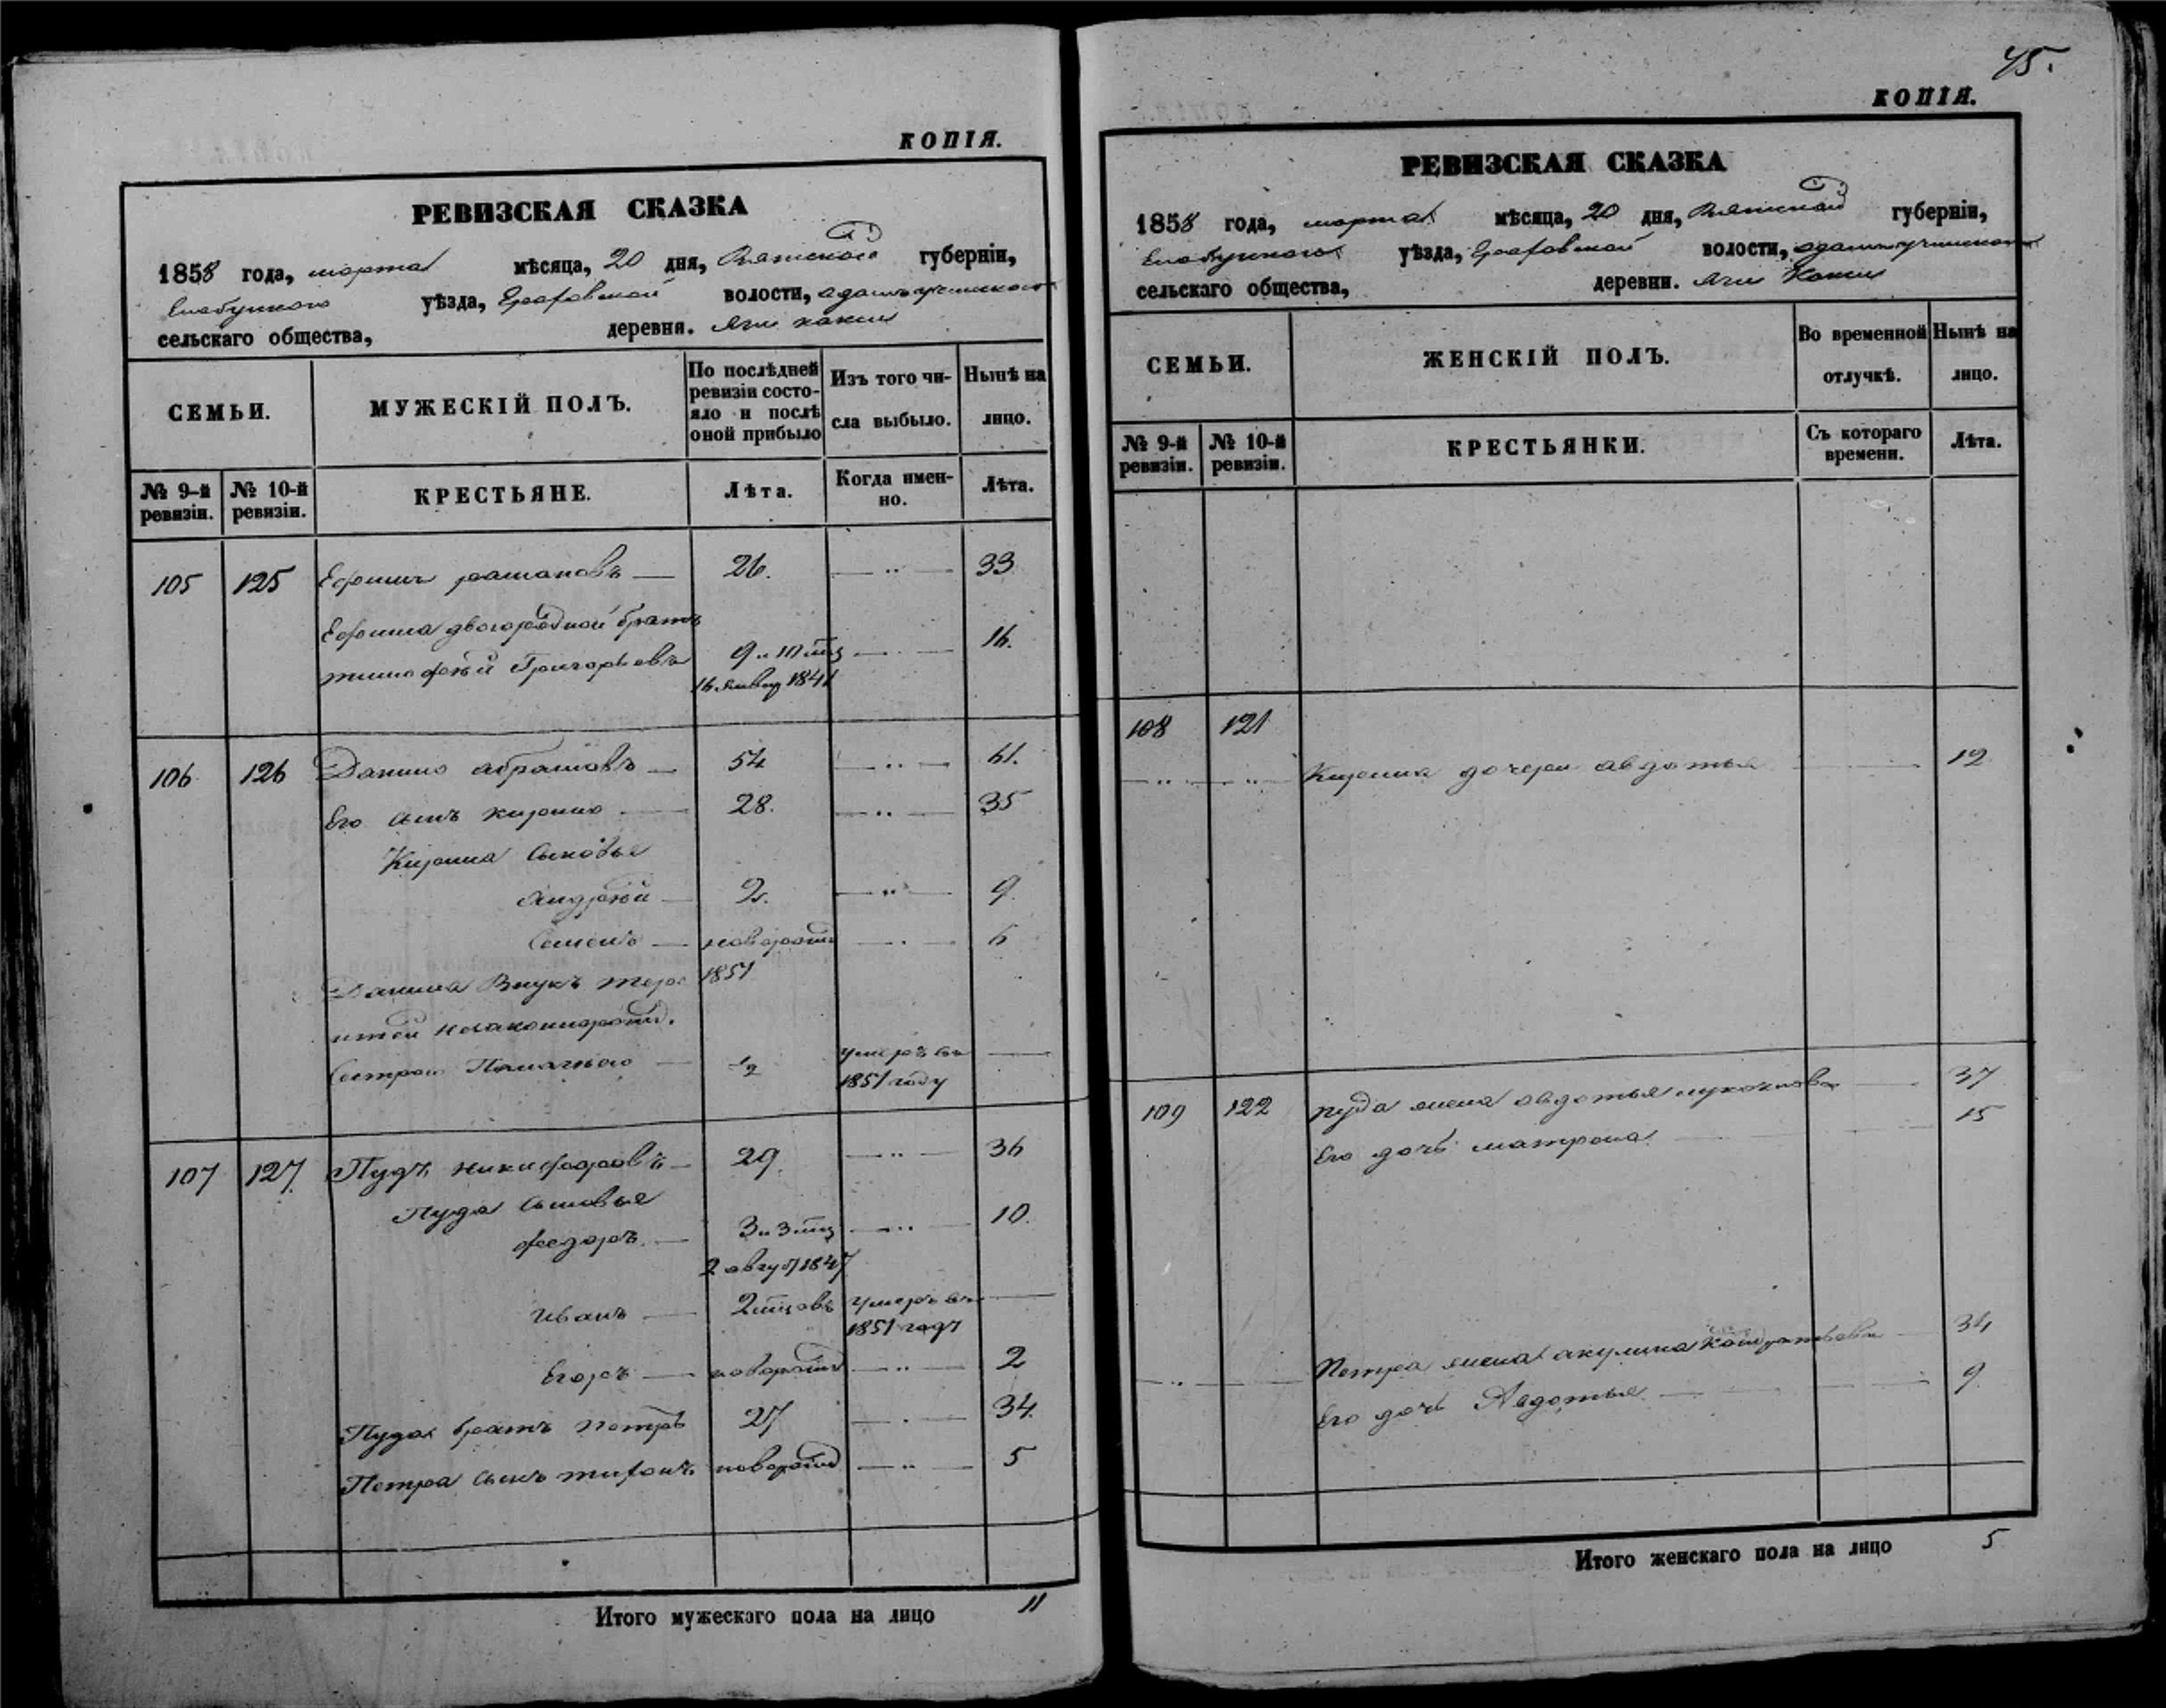 КОПІЯ.
РЕВИЗСКАЯ СКАЗКА
1858 года, марта мѣсяца, 20 дня, Вятской губерніи,
Елабужского уѣзда, Граховской волости,
сельскаго общества, деревня.
СЕМЬИ.
МУЖЕСКІЙ ПОЛЪ.
По послѣдней ревизіи состояло и послѣ оной прибыло
Изъ того числа выбыло.
Нынѣ на лицо.
№ 9-й ревизіи.
№ 10-й ревизіи.
КРЕСТЬЯНЕ.
Лѣта.
Когда именно.
Лѣта.
105 125 Ефимъ 26. 33
Ефима двоюродной братъ
тимофѣй Григорьевъ 9 и 10 мц 16.
106 126 Данило абрамовъ 54 61.
Его сынъ кирило 28. 35
Кирила сыновья
Андрѣй 2. 9.
Семенъ новорожд 6
Данила Внукъ 1851
незаконнорожд.
1/2 умеръ въ
1851 году
107 127. Пудъ никифоровъ 29. 36
Пуда сыновья
федоръ. 3 и 3 мц 10.
2 август 1847
Иванъ 2 мцовъ умеръ въ
1851 годъ
Егоръ новорожд 2
Пуда братъ петръ 27 34.
Петра сынъ новорожд 5
Итого мужескаго пола на лицо 11
45.
КОПІЯ.
РЕВИЗСКАЯ СКАЗКА
1858 года, марта мѣсяца, 20 дня, Вятской губерніи,
Елабужского уѣзда, Граховской волости,
сельскаго общества, деревни.
СЕМЬИ.
ЖЕНСКІЙ ПОЛЪ.
Во временной отлучкѣ.
Нынѣ на лицо.
№ 9-й ревизіи.
№ 10-й ревизіи.
КРЕСТЬЯНКИ.
Съ котораго времени.
Лѣта.
108 121
Кирила дочери авдотья 12
109 122 пуда жена авдотья 37
Его дочь матрона 15
Петра жена акулина 34
Его дочь Авдотья 9
Итого женскаго пола на лицо 5